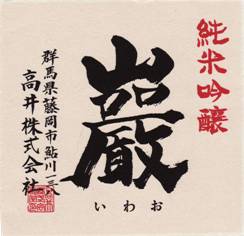 純米吟醸
巖
いわお
群馬県藤岡市鮎川一三八
高井株式会社